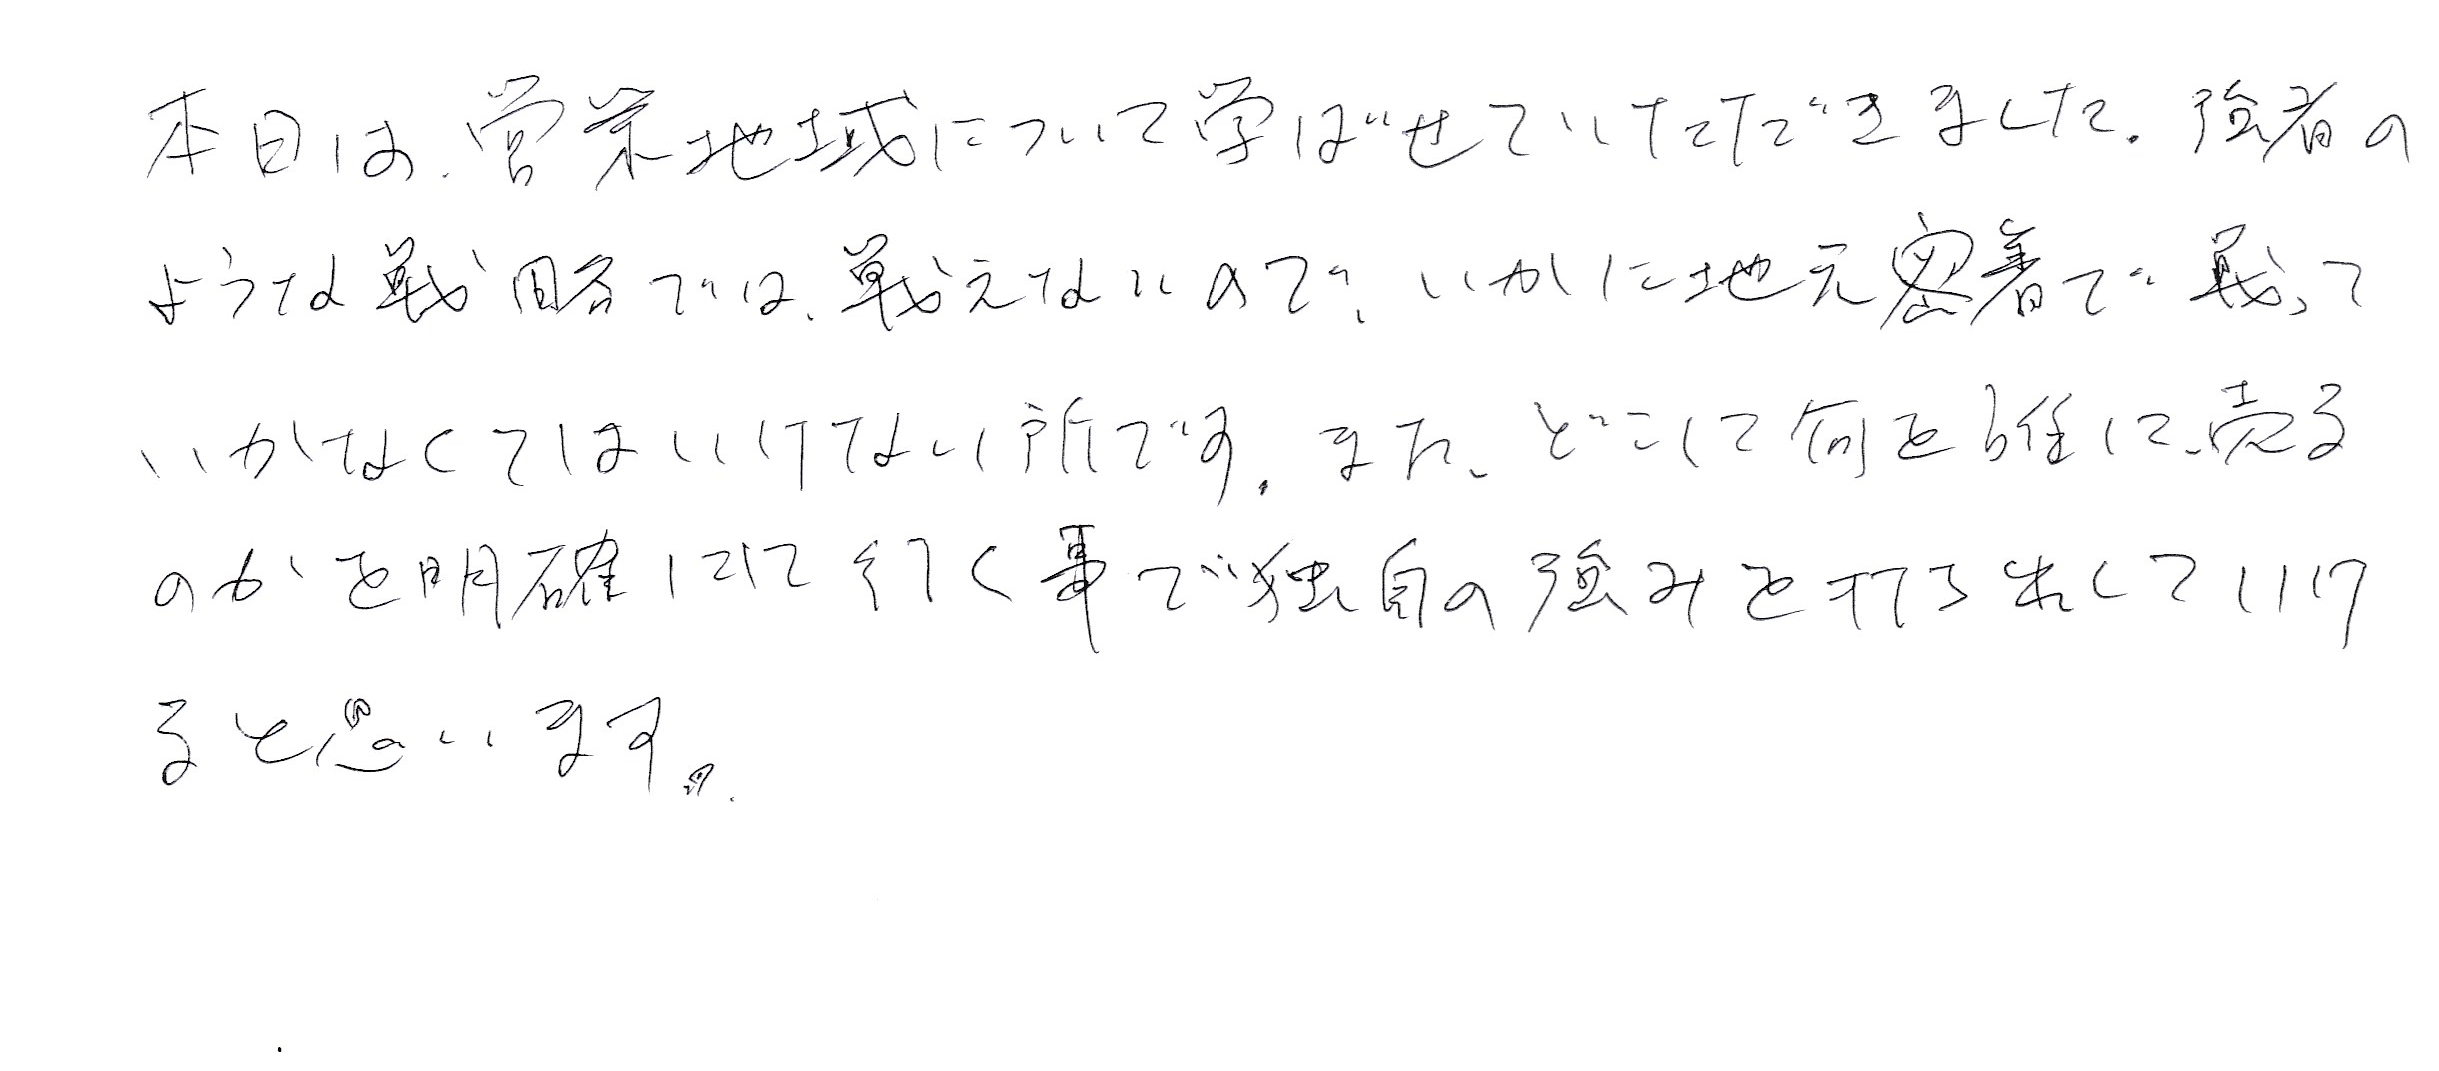 本日は、営業地域について学ばせていただきました。強者の
ような戦略では、戦えないので、いかに地元密着で戦って
いかなくてはいけない所です。また、どこに何を誰に、売る
のかを明確にして行く事で独自の強みを打ち出していけ
ると思います。